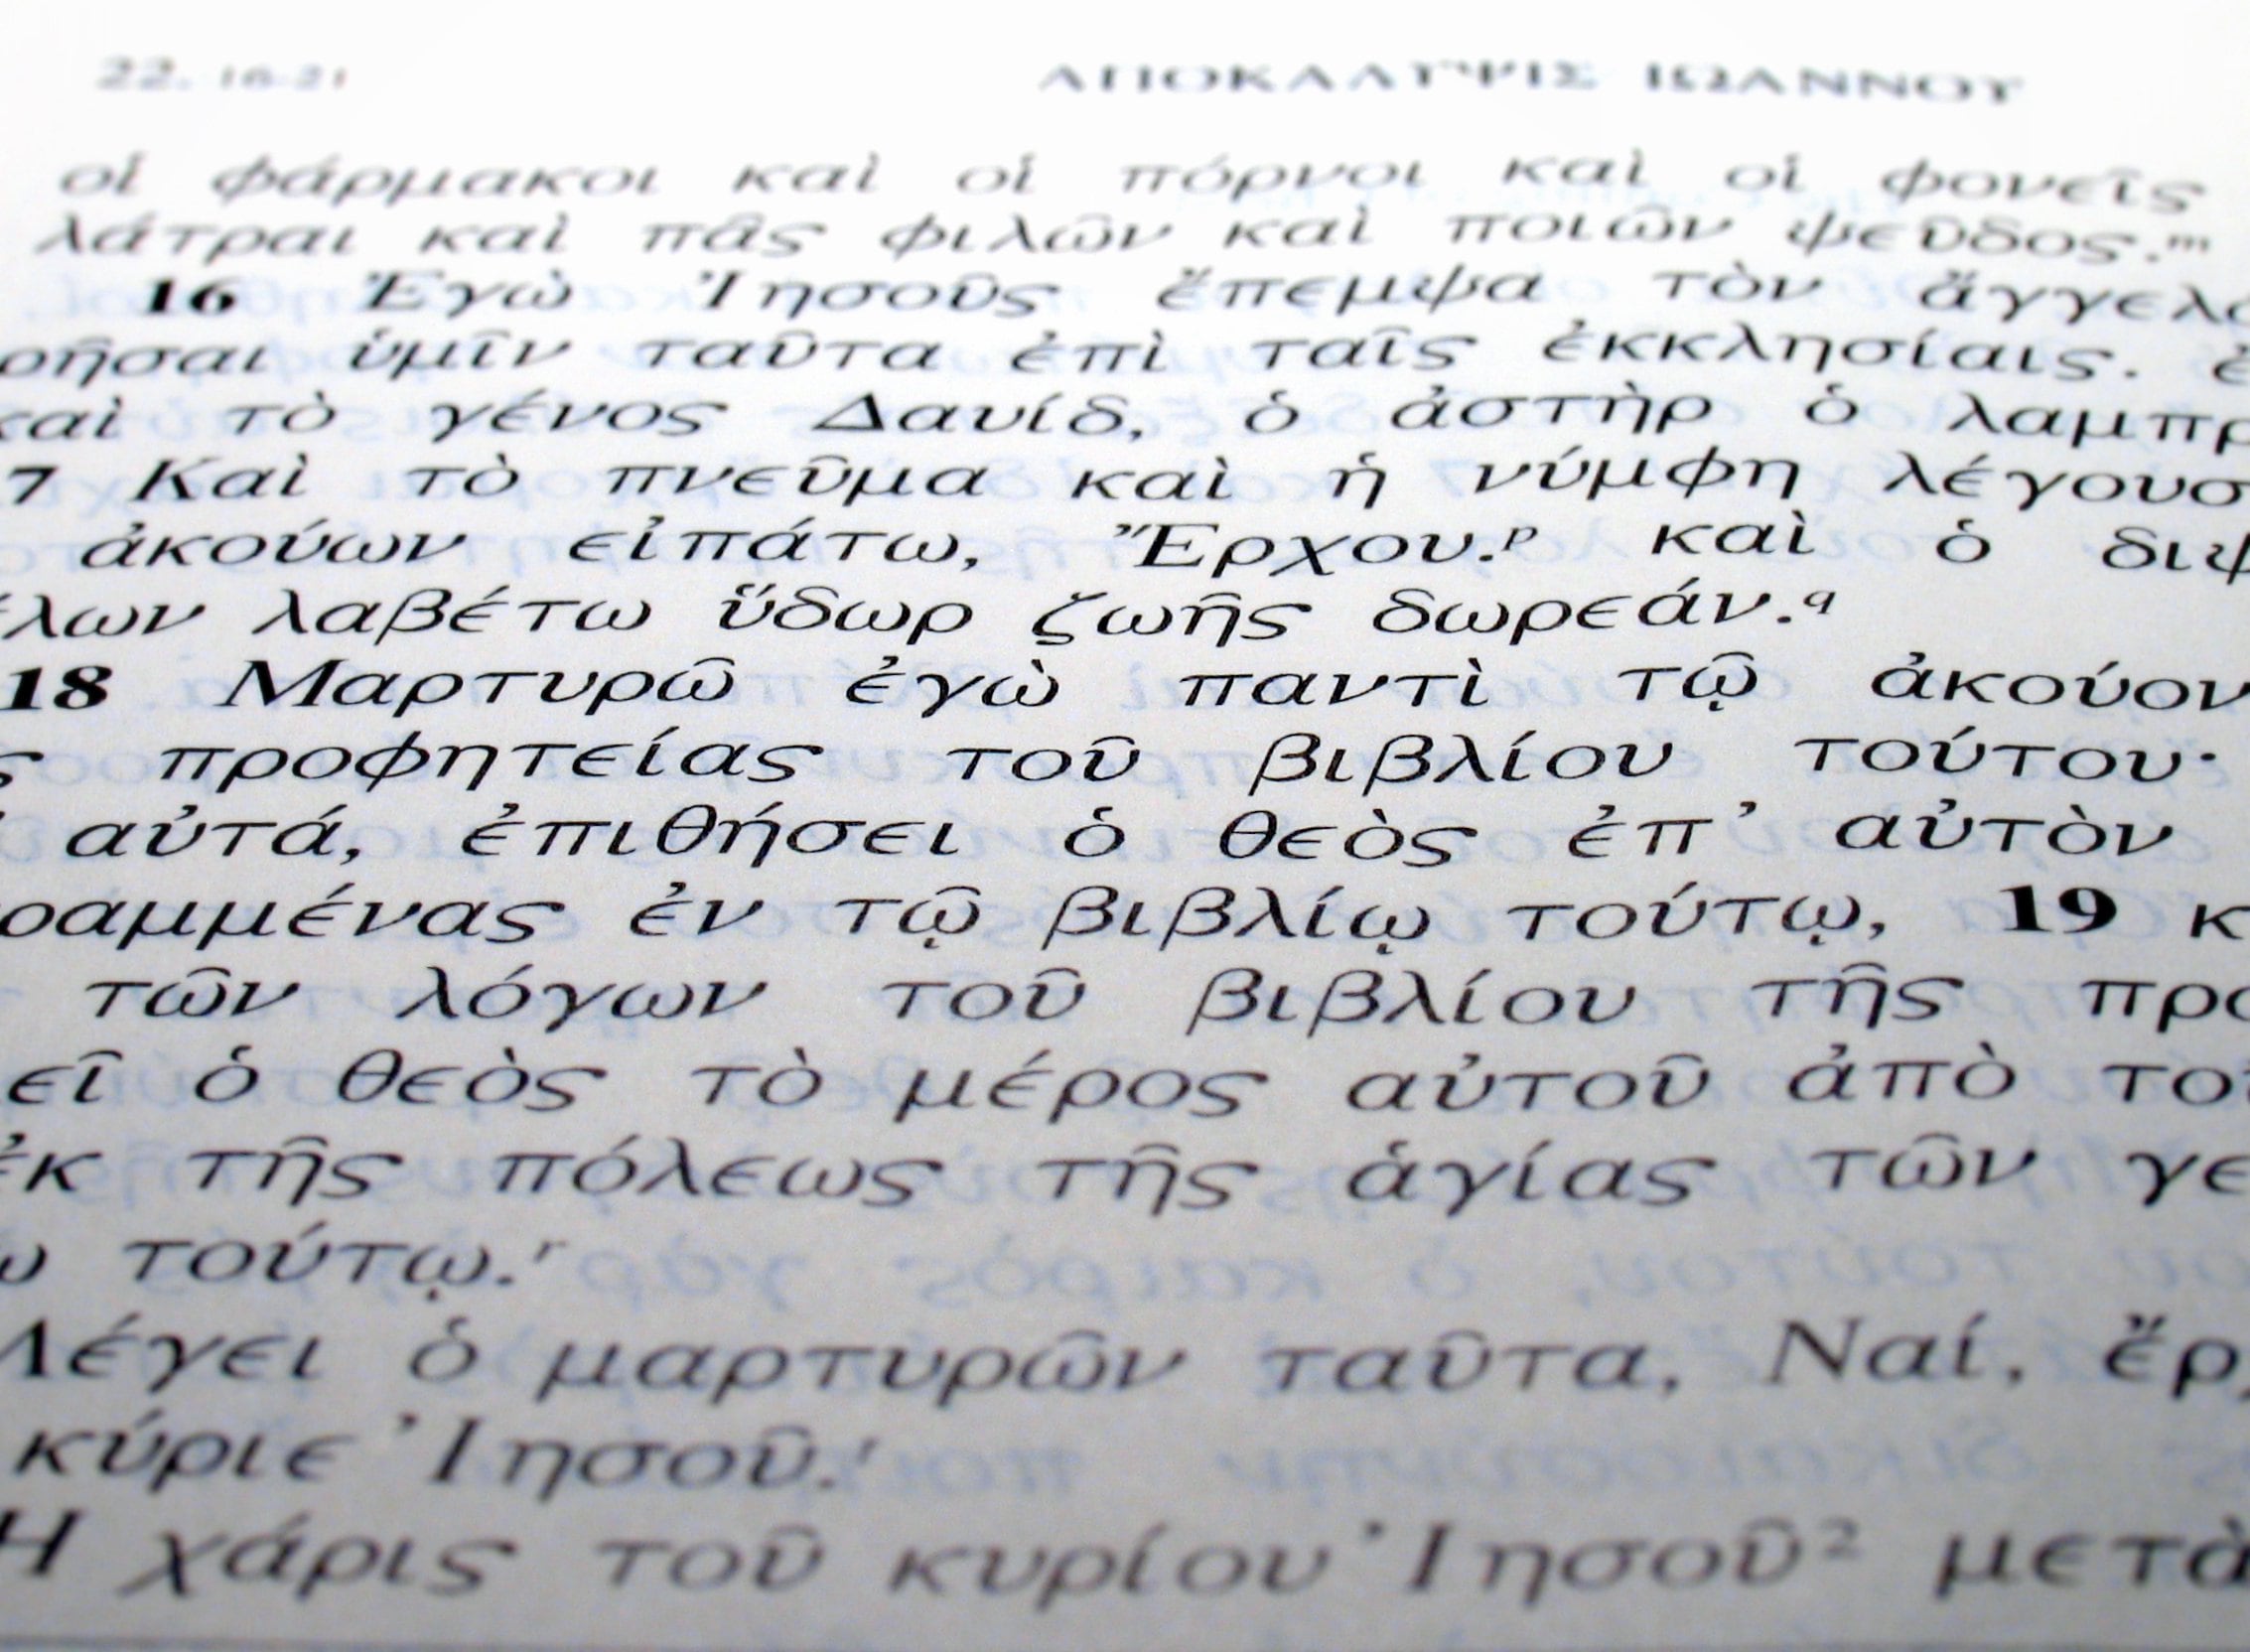 22. 16-21 ΑΠΟΚΑΛΥΨΙΣ ΙΩΑΝΝΟΥ
οἱ φάρμακοι καὶ οἱ πόρνοι καὶ οἱ φονεῖς
λάτραι καὶ πᾶς φιλῶν καὶ ποιῶν ψεῦδος.m
16 Ἐγὼ Ἰησοῦς ἔπεμψα τὸν ἄγγελο
ρῆσαι ὑμῖν ταῦτα ἐπὶ ταῖς ἐκκλησίαις. ἐ
καὶ τὸ γένος Δαυίδ, ὁ ἀστὴρ ὁ λαμπρ
7 Καὶ τὸ πνεῦμα καὶ ἡ νύμφη λέγουσ
ἀκούων εἰπάτω, Ἔρχου.p καὶ ὁ διψ
έλων λαβέτω ὕδωρ ζωῆς δωρεάν.q
18 Μαρτυρῶ ἐγὼ παντὶ τῷ ἀκούον
ς προφητείας τοῦ βιβλίου τούτου·
αὐτά, ἐπιθήσει ὁ θεὸς ἐπ’ αὐτὸν
ραμμένας ἐν τῷ βιβλίῳ τούτῳ, 19 κ
τῶν λόγων τοῦ βιβλίου τῆς προ
εῖ ὁ θεὸς τὸ μέρος αὐτοῦ ἀπὸ το
ἐκ τῆς πόλεως τῆς ἁγίας τῶν γε
ῳ τούτῳ.r
Λέγει ὁ μαρτυρῶν ταῦτα, Ναί, ἔρχ
κύριε Ἰησοῦ.t
Ἡ χάρις τοῦ κυρίου Ἰησοῦ2 μετὰ